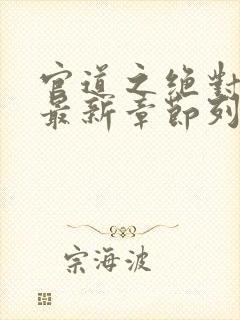 官道之绝对
最新章节列
宗海波